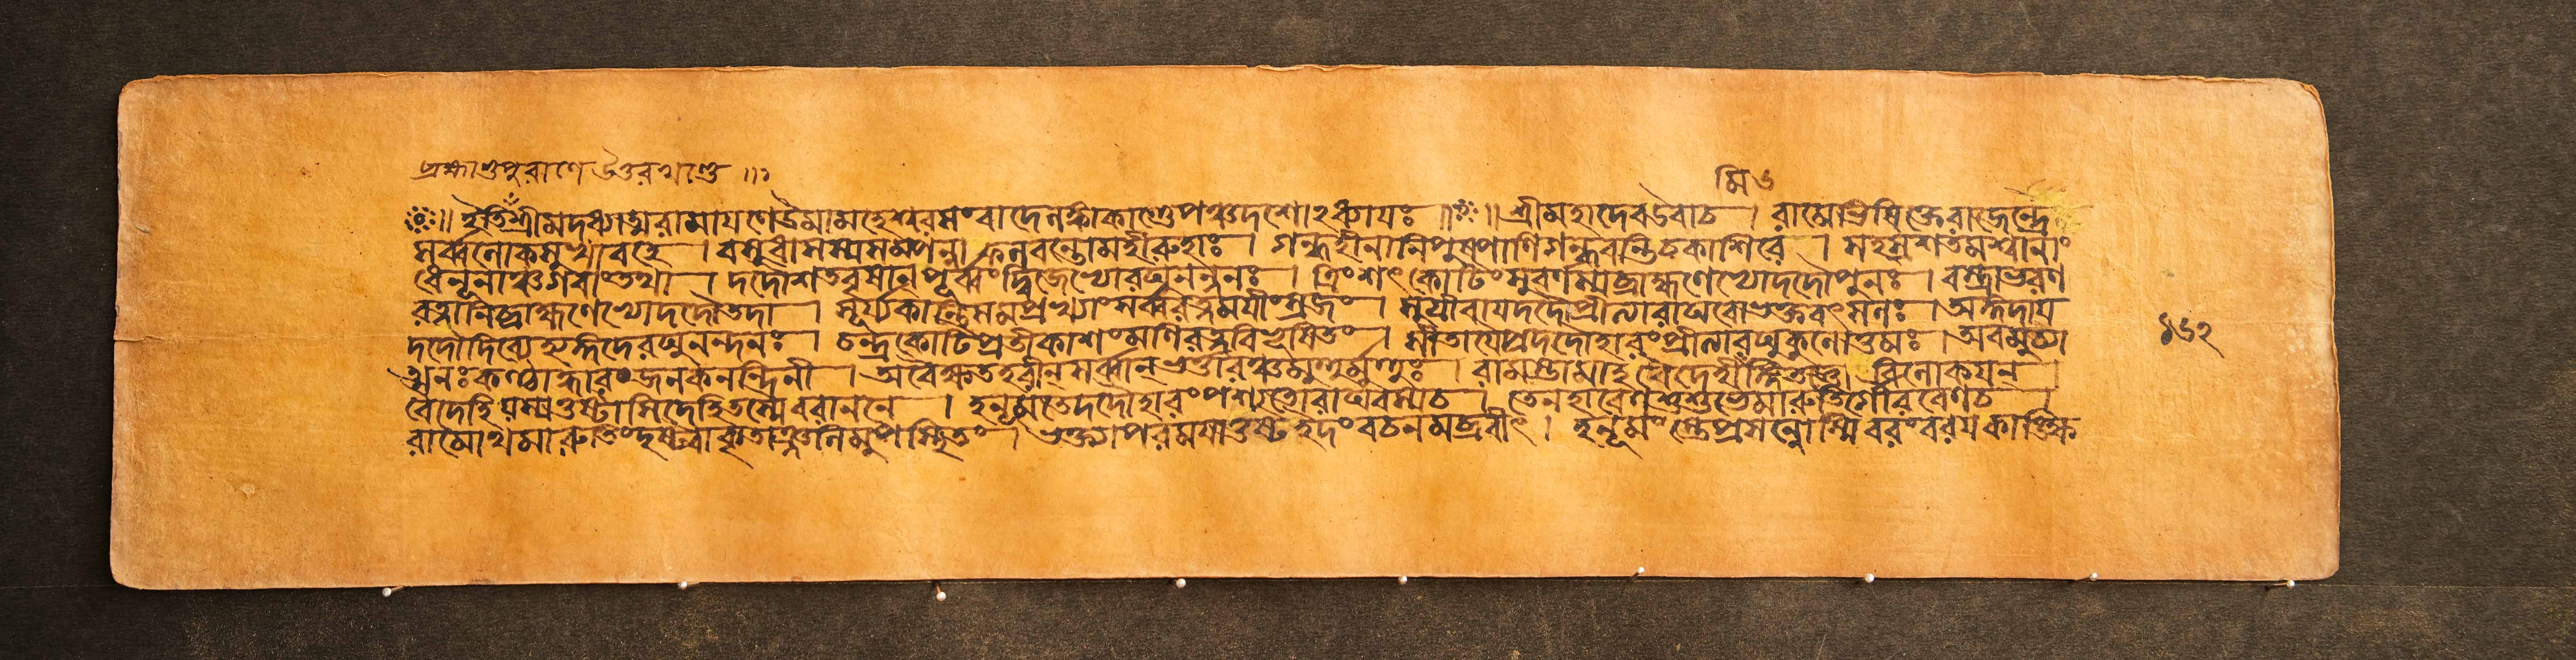 ব্রহ্মাণ্ডপুরাণে উত্তরখণ্ডে ॥
॥ ইতিশ্রীমদধ্যাত্মরামায়ণেউমামহেশ্বরসংবাদেলঙ্কাকাণ্ডেপঞ্চদশোঽধ্যায়ঃ ॥ ॥ শ্রীমহাদেবউবাচ । রামেভিষিক্তেরাজেন্দ্রে
সর্ব্বলোকসুখাবহে । বসুধাসস্যসম্পন্না ফলবন্তোমহীরুহাঃ । গন্ধহীনানিপুষ্পাণিগন্ধবন্তিচকাশিরে । সহস্রশতমশ্বানাং
ধেনূনাঞ্চগবাংতথা । দদৌশতবৃষান্পূর্ব্বংদ্বিজেভ্যোরঘুনন্দনঃ । ত্রিংশৎকোটিংসুবর্ণস্যব্রাহ্মণেভ্যোদদৌপুনঃ । বস্ত্রাভরণ
রত্নানিব্রাহ্মণেভ্যোদদৌতদা । সূর্য্যকান্তিসমপ্রখ্যাংসর্ব্বরত্নময়ীংস্রজং । সুগ্রীবায়দদৌপ্রীত্যারাঘবোভক্তবৎসলঃ । অঙ্গদায়
দদৌদিব্যেহ্যঙ্গদেরঘুনন্দনঃ । চন্দ্রকোটিপ্রতীকাশংমণিরত্নবিভূষিতং । সীতায়ৈপ্রদদৌহারংপ্রীত্যারঘুকুলোত্তমঃ । অবমুচ্যা
ত্মনঃকণ্ঠাদ্ধারংজনকনন্দিনী । অবৈক্ষতহরীন্সর্ব্বান্ভর্ত্তারঞ্চমুহুর্মুহুঃ । রামস্তামাহবৈদেহীমিঙ্গিতজ্ঞো বিলোকয়ন্ ।
বৈদেহিযস্যতুষ্টাসিদেহিতস্মৈবরাননে । হনূমতেদদৌহারংপশ্যতোরাঘবস্যচ । তেনহারেণশুশুভেমারুতির্গৌরবেণচ ।
রামোথমারুতিংদৃষ্ট্বাকৃতাঞ্জলিমুপস্থিতং । ভক্ত্যাপরময়াতুষ্টইদংবচনমব্রবীৎ । হনূমংস্তেপ্রসন্নোস্মিবরংবরয়কাঙ্ক্ষি